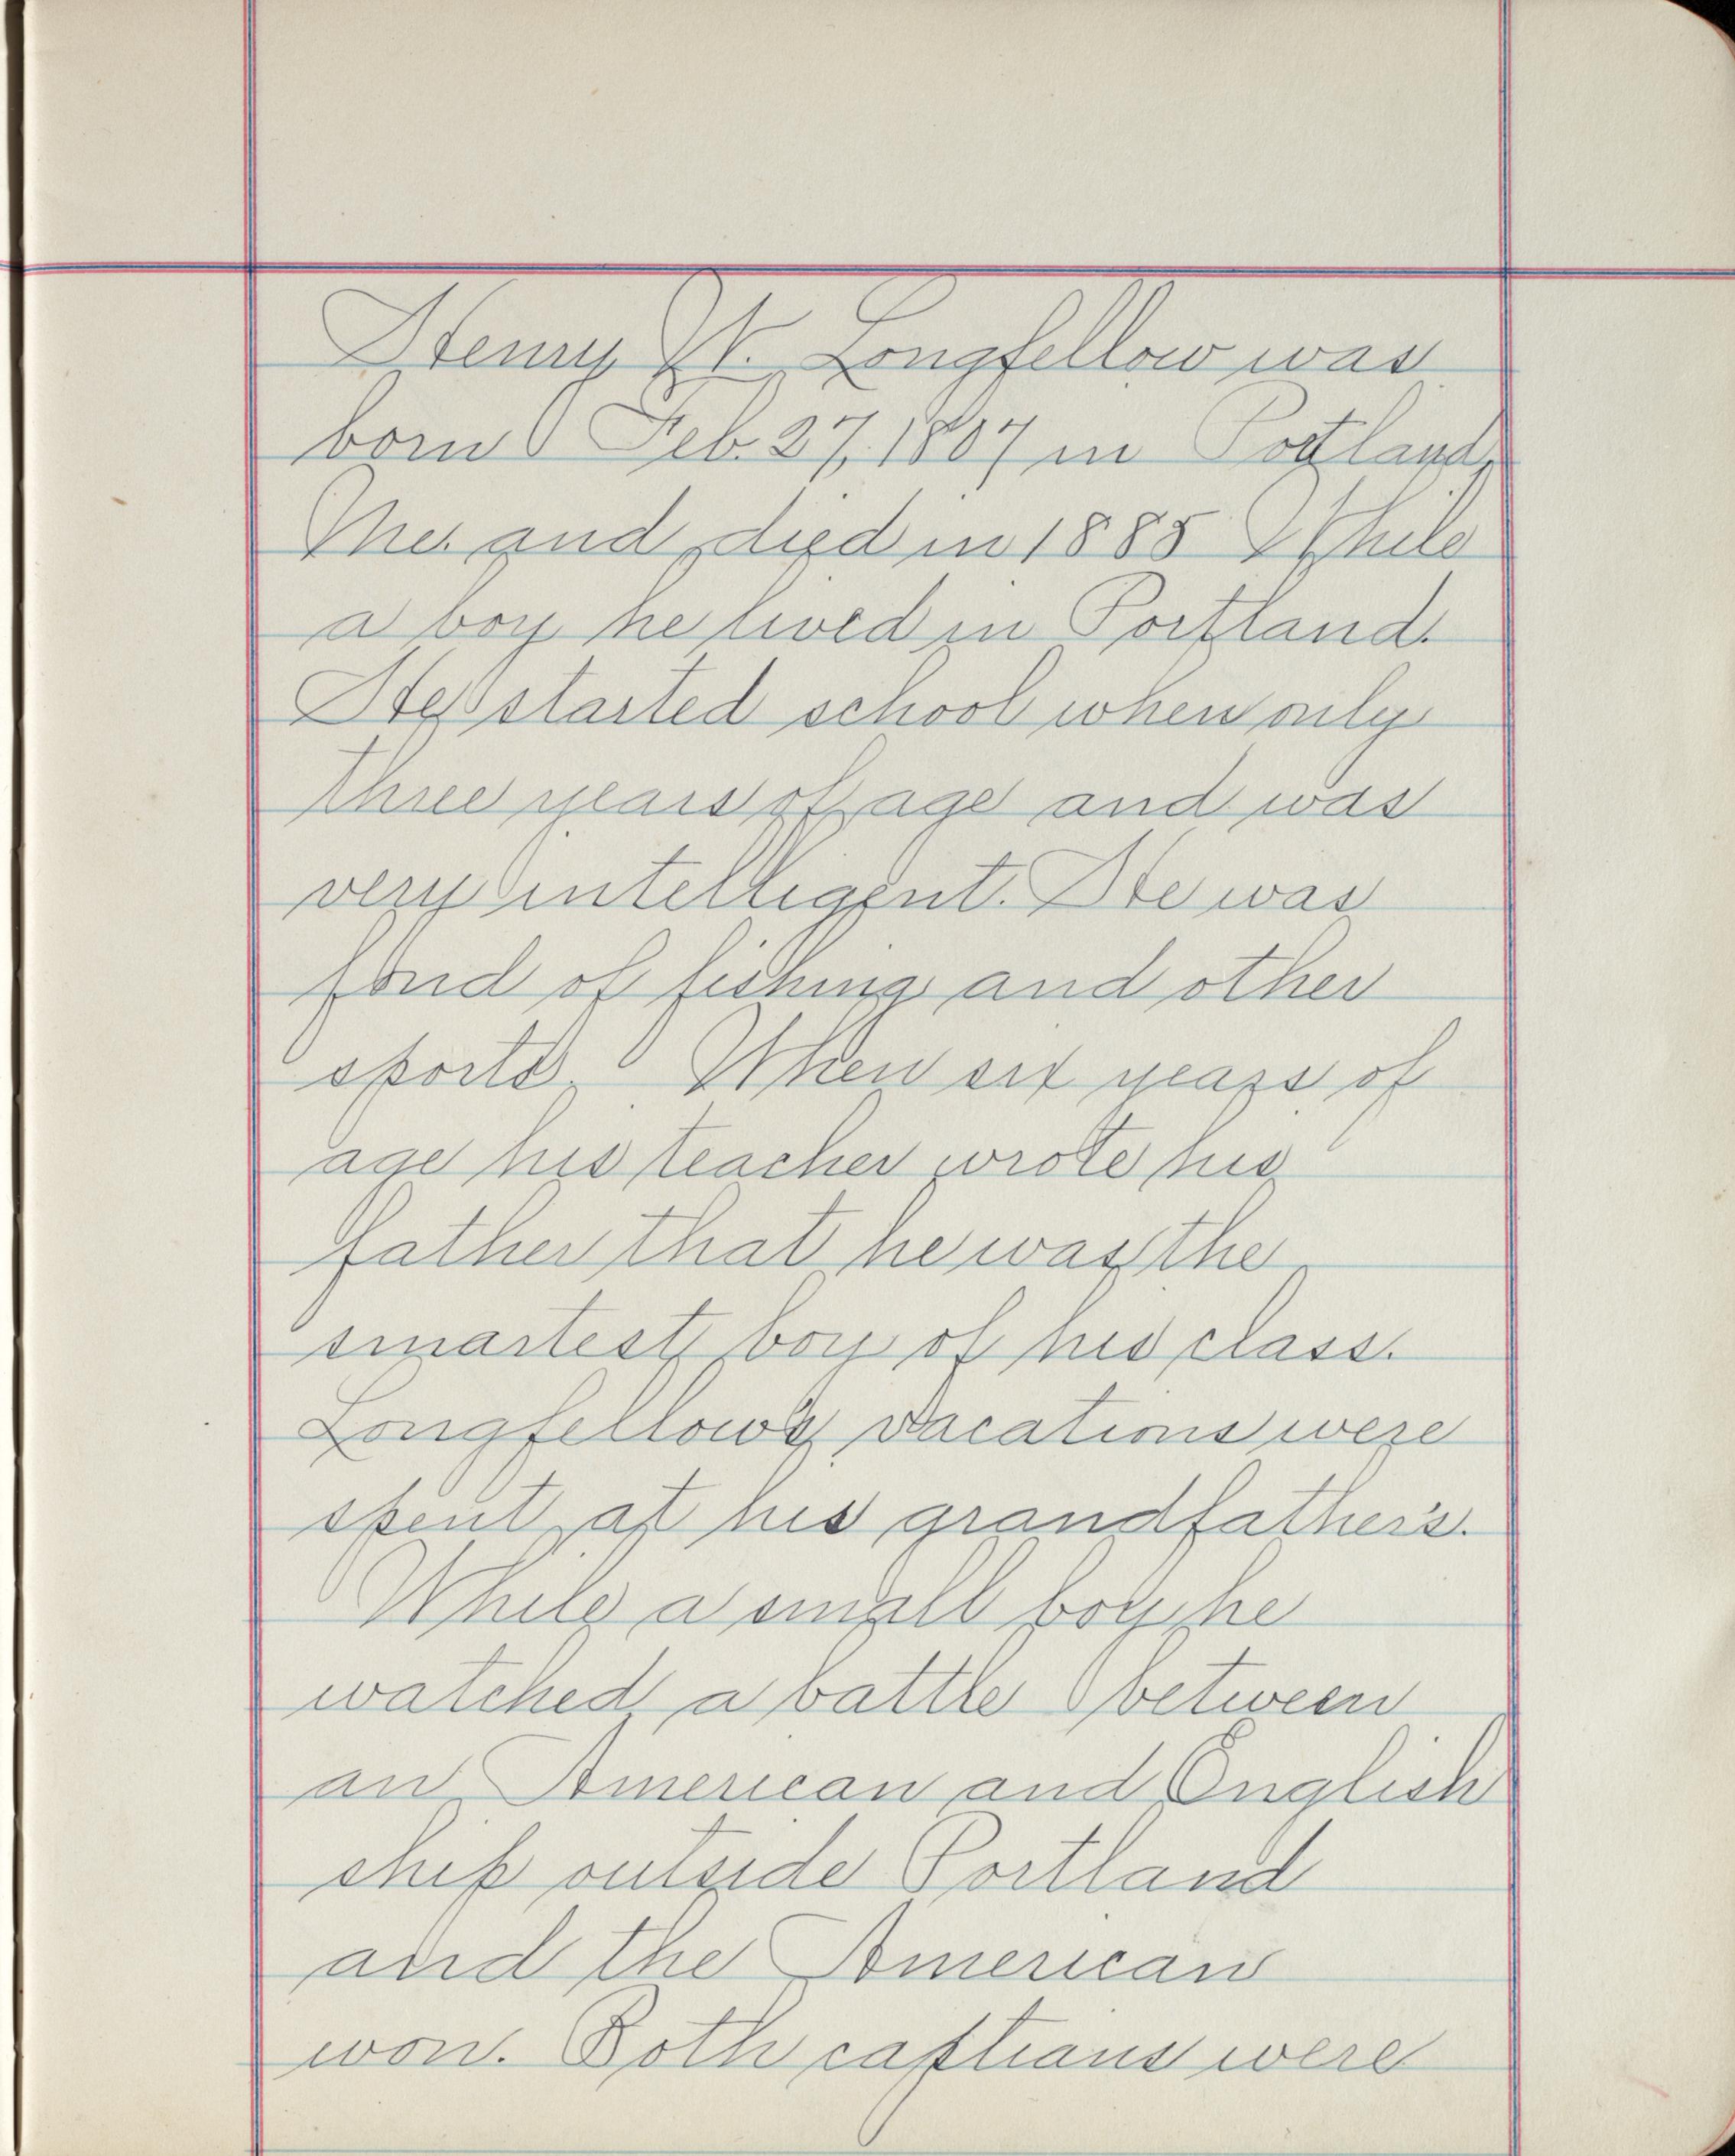 Henry W. Longfellow was
born Feb. 27, 1807 in Portland,
Me. and died in 1885 While
a boy he lived in Portland.
He started school when only
three years of age and was
very intelligent. He was
fond of fishing and other
sports. When six years of
age his teacher wrote his
father that he was the
smartest boy of his class.
Longfellow's vacations were
spent at his grandfather's.
While a small boy he
watched a battle between
an American and English
ship outside Portland
and the American
won. Both captians were